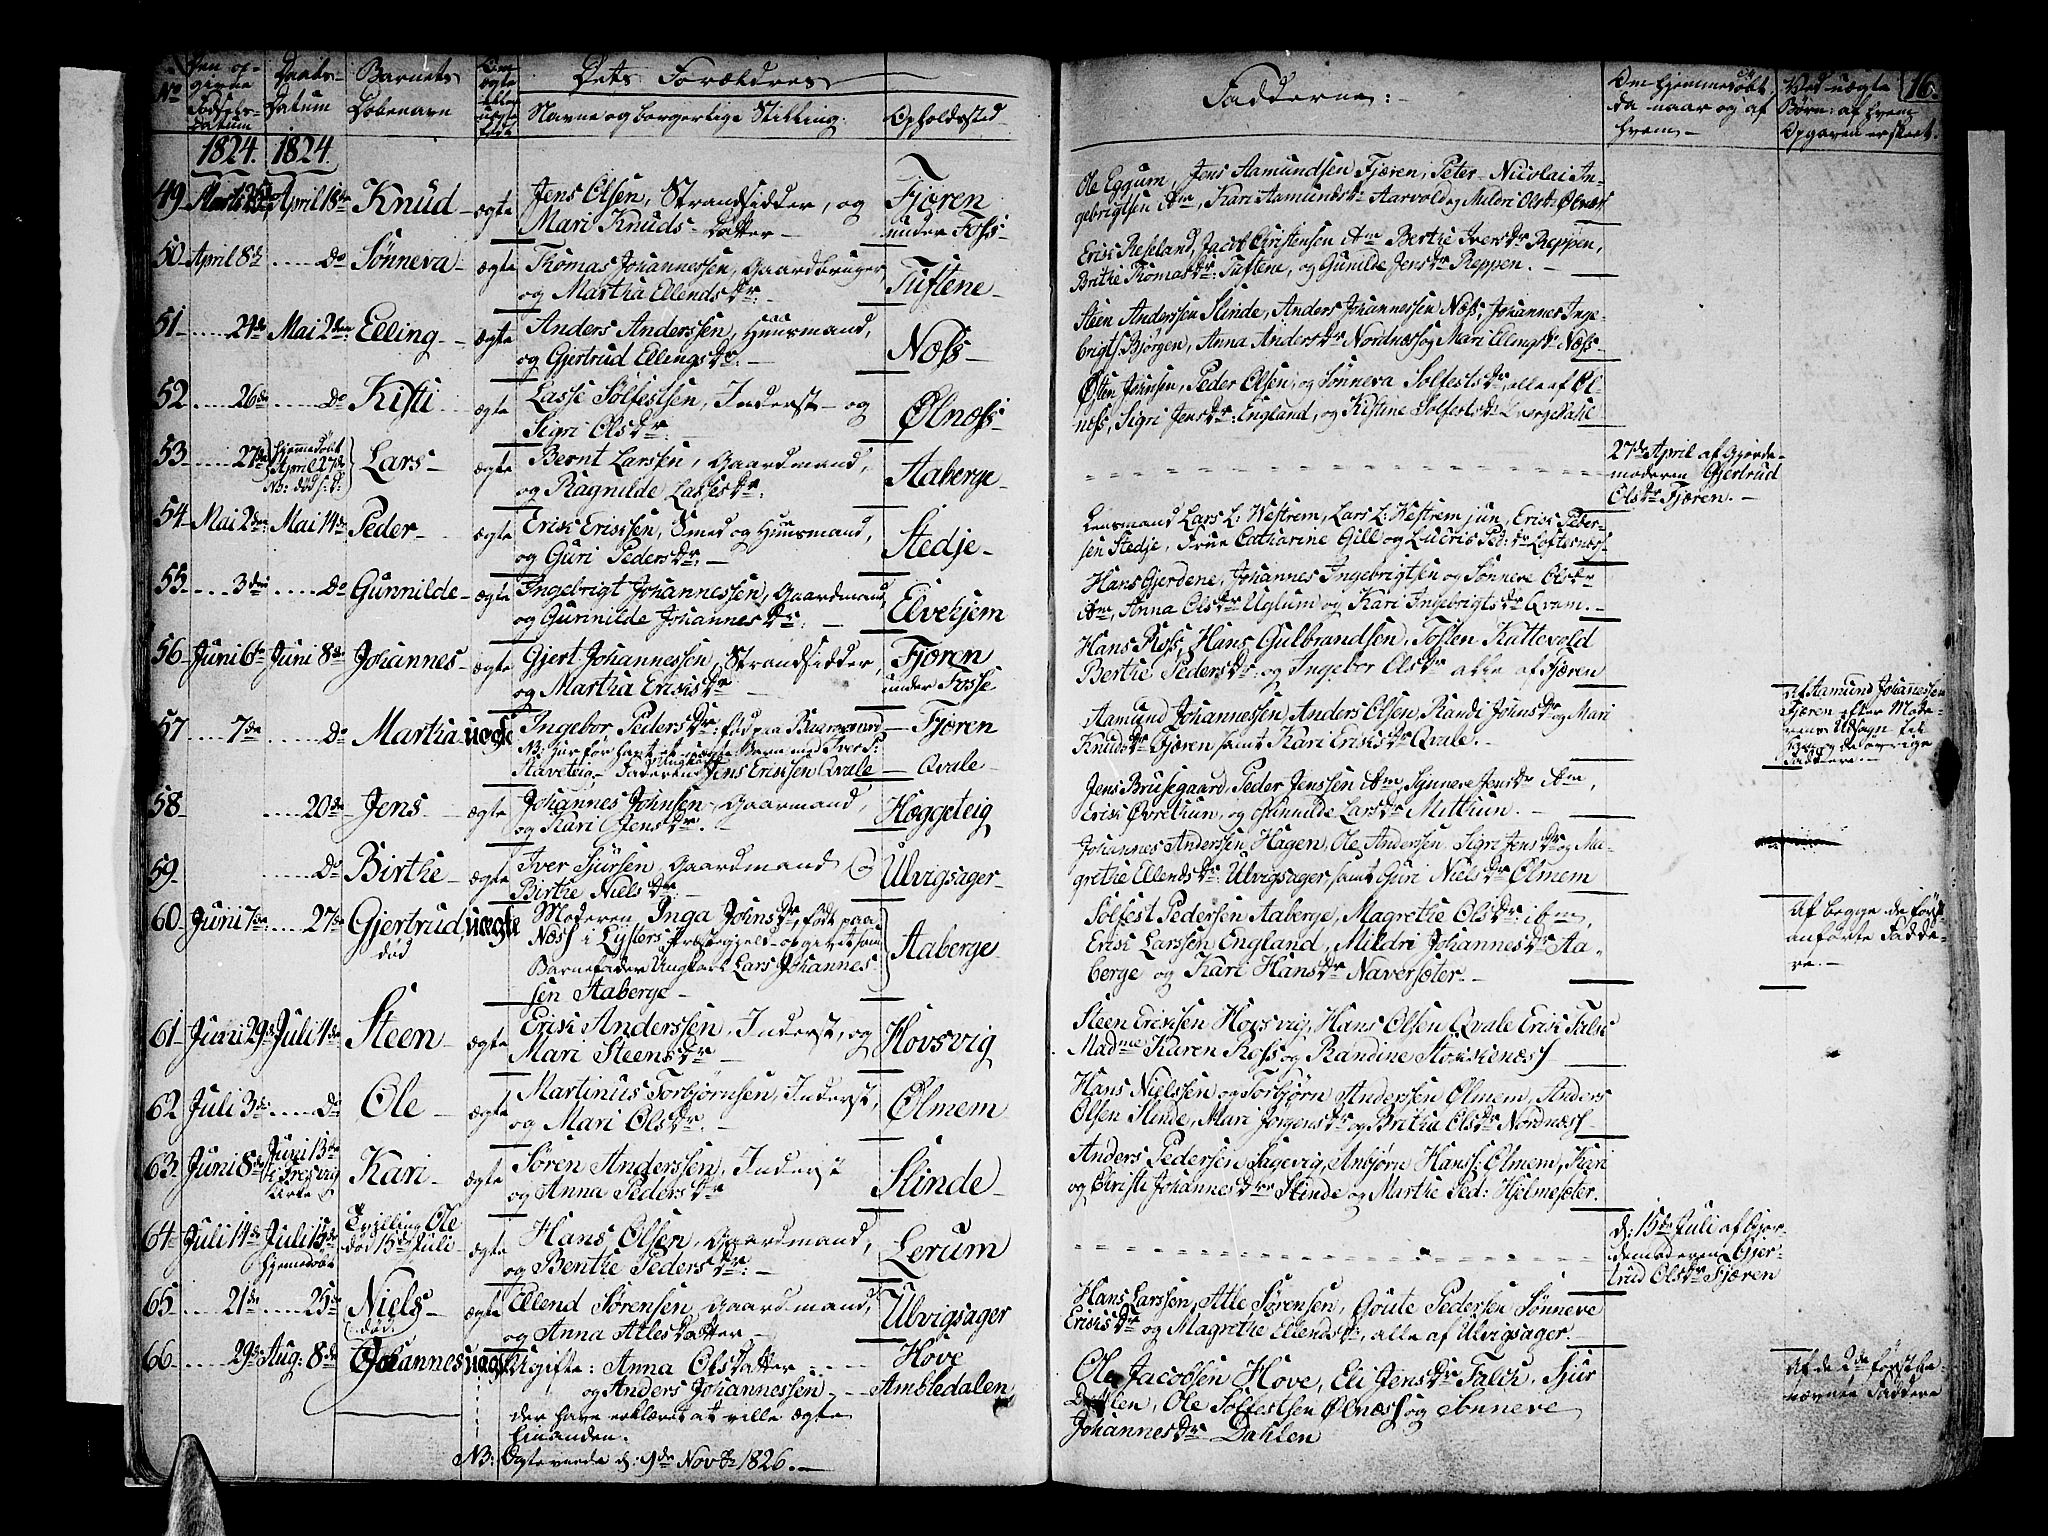 No Den op-givne Fødsels-datum Daabs-Datum Barnets Døbenavn Om ægte eller uægte født Dets Forældres
Navne og borgerlige Stilling. Opholdssted
Fadderne:
Om hjemmedøbt, da naar og af hvem Ved uægte Børn: af hvem Opgaven er skeet. 16.
1824. 1824.
49 April 18de Knud ægte Jens Olsen, Strandsidder, og
Mari Knuds-Datter
Fjæren
under Foss
Ole Eggum, Jens Aamundsen Fjæren, Peter Nicolai In-
gebrigtsen ibm, Kari Aamundsdr Aarvold og Mildri Olsdr Ølnæs
50 April 8de do Sønneva ægte Thomas Johannessen, Gaardbruger
og Martha Ellendsdr:
Tuftene
Erik Reseland, Jacob Christensen ibm Berthe Iversdr Reppen,
Brithe Thomasdr: Tuftene, og Gunilde Jensdr Reppen.
51 24de Mai 2den Elling ægte Anders Anderssen, Huusmand,
og Gjertrud Ellingsdr.
Næss
Steen Anderssen Slinde, Anders Johannessen Næss, Johannes Inge-
brigts: Bjørgen, Anna Andersdr Nordnæs og Mari Ellingsdr Næss
52 26de do Kisti ægte Lasse Sølfestsen, Inderst og
Sigri Olsdr:
Ølnæss
Østen Johnsen, Peder Olsen, og Sønneva Sølfestsdr, alle af Øl-
næss, Sigri Jensdr: England, og Kistine Sølfestsdr
53 27de hjemmedøbt April 27de NB: død Lars ægte Bernt Larsen, Gaardmand,
og Ragnilde Lassesdr:
Aaberge
27de April af Gjorde-
moderen Gjertrud
Olsdr Fjæren.
54 Mai 2den Mai 14de Peder ægte Erik Eriksen, Smed og Huusmand,
og Guri Pedersdr:
Stedje
Lensmand Lars L: Westrem, Lars L: Westrem jun, Erik Peder-
sen Stedje, Frue Catharine Gill og Lucris Ped:dr Loftesnæss
55 3die do Gunnilde ægte Ingebrigt Johannessen, Gaardmand,
og Gunnilde Johannesdr:
Elvehjem
Hans Gjerdene, Johannes Ingebrigtsen og Sønneve Olsdr
ibm, Anna Olsdr Uglum og Kari Ingebrigtsdr Qvam.
56 Juni 6te Juni 8de Johannes ægte Gjert Johannessen, Strandsidder,
og Martha Eriksdr
Fjæren
under Fosse
Hans Ross, Hans Gulbrandsen, Tosten Kattevold
Berthe Pedersdr: og Ingebor Olsdr alle af Fjæren
57 7de do Martha uægte Ingebor Pedersdr, født paa
NB: har før havt et uægte Barn med Iver S:
Aaveteig Faderen Ungkarl Jens Erikssen Qvale
Fjæren
Qvale
Aamund Johannessen, Anders Olsen, Randi Johnsdr og Mari
Knudsdr Fjæren samt Kari Eriksdr Qvale.
af Aamund Johannessen
Fjæren efter Mode-
rens Udsagn til
ham og de øvrige
Faddere.
58 20de Jens ægte Johannes Johnsen, Gaarmand,
og Kari Jensdr.
Hæggeteig
Jens Brusegaard, Peder Jenssen ibm, Synneve Jensdr ibm,
Erik Øvrethun, og Gunnilde Larsdr Mitthun.
59 do Birthe ægte Iver Sjursen, Gaardmand og
Birthe Nielsdr:
Ulvigsager
Johannes Andersen Hagen, Ole Andersen, Sigri Jensdr og Ma-
grethe Ellendsdr: Ulvigsager, samt Guri Nielsdr Ølmem
60 Juni 7de 27de Gjertrud, død uægte Moderen, Inga Johnsdr, født paa
Næss i Lysters Præstegjeld opgivet som
Barnefader Ungkarl Lars Johannes-
sen Aaberge
Aaberge
Sølfest Pedersen Aaberge, Magrethe Olsdr: ibm,
Erik Larssen England, Mildri Johannesdr Aa-
berge og Kari Hansdr Naversæter
Af begge de først
anførte Fadde-
re.
61 Juni 29de Juli 4de Steen ægte Erik Anderssen, Inderst, og
Mari Steensdr
Hovsvig
Steen Erikssen Hovsvig, Hans Olsen Qvale, Erik Falk
Madme Karen Ross og Randine Stokkenæss
62 Juli 3de do Ole ægte Martinus Torbjørnsen, Inderst,
og Mari Olsdr.
Ølmem
Hans Nielssen og Torbjørn Anderssen Ølmem, Anders
Olsen Slinde, Mari Jørgensdr og Britha Olsdr Nordnæss
63 Juni 8de Juni 13de i Fresvig Kirke Kari ægte Søren Anderssen, Inderst
og Anna Pedersdr
Slinde
Anders Pedersen Sagevig, Anbjørn Hanss: Ølmem, Kari
og Christi Johannesdtr Slinde og Marthe Ped: Hjelmesæter.
64 Juli 14de Juli 15de hjemmedøbt Tvilling Ole død 15de Juli ægte Hans Olsen, Gaardmand,
og Benthe Pedersdr:
Lerum
d: 15de Juli af Gjor-
demoderen Gjer-
trud Olsdr Fjæren
65 21de 25de Niels (død) ægte Ellend Sørensen, Gaardmand,
og Anna Atlesdatter
Ulvigsager
Hans Larssen, Atle Sørensen, Goute Pedersen Sønneve
Eriksdr og Magrethe Ellendsdr, alle af Ulvigsager.
66 29de Aug: 8de Johannes uægte Ugifte: Anna Olsdatter
og Anders Johannessen
der have erklæret at ville ægte
hinanden.
NB: Ægteviede d: 9de Novbr 1826.
Hove
Ambledalen
Ole Jacobsen Hove, Eli Jensdr Falck, Sjur
Dahlen, Ole Sølfestsen Ølnæss og Sønneve
Johannesdr Dahlen
Af de 2de førstbe-
nævnte Faddere